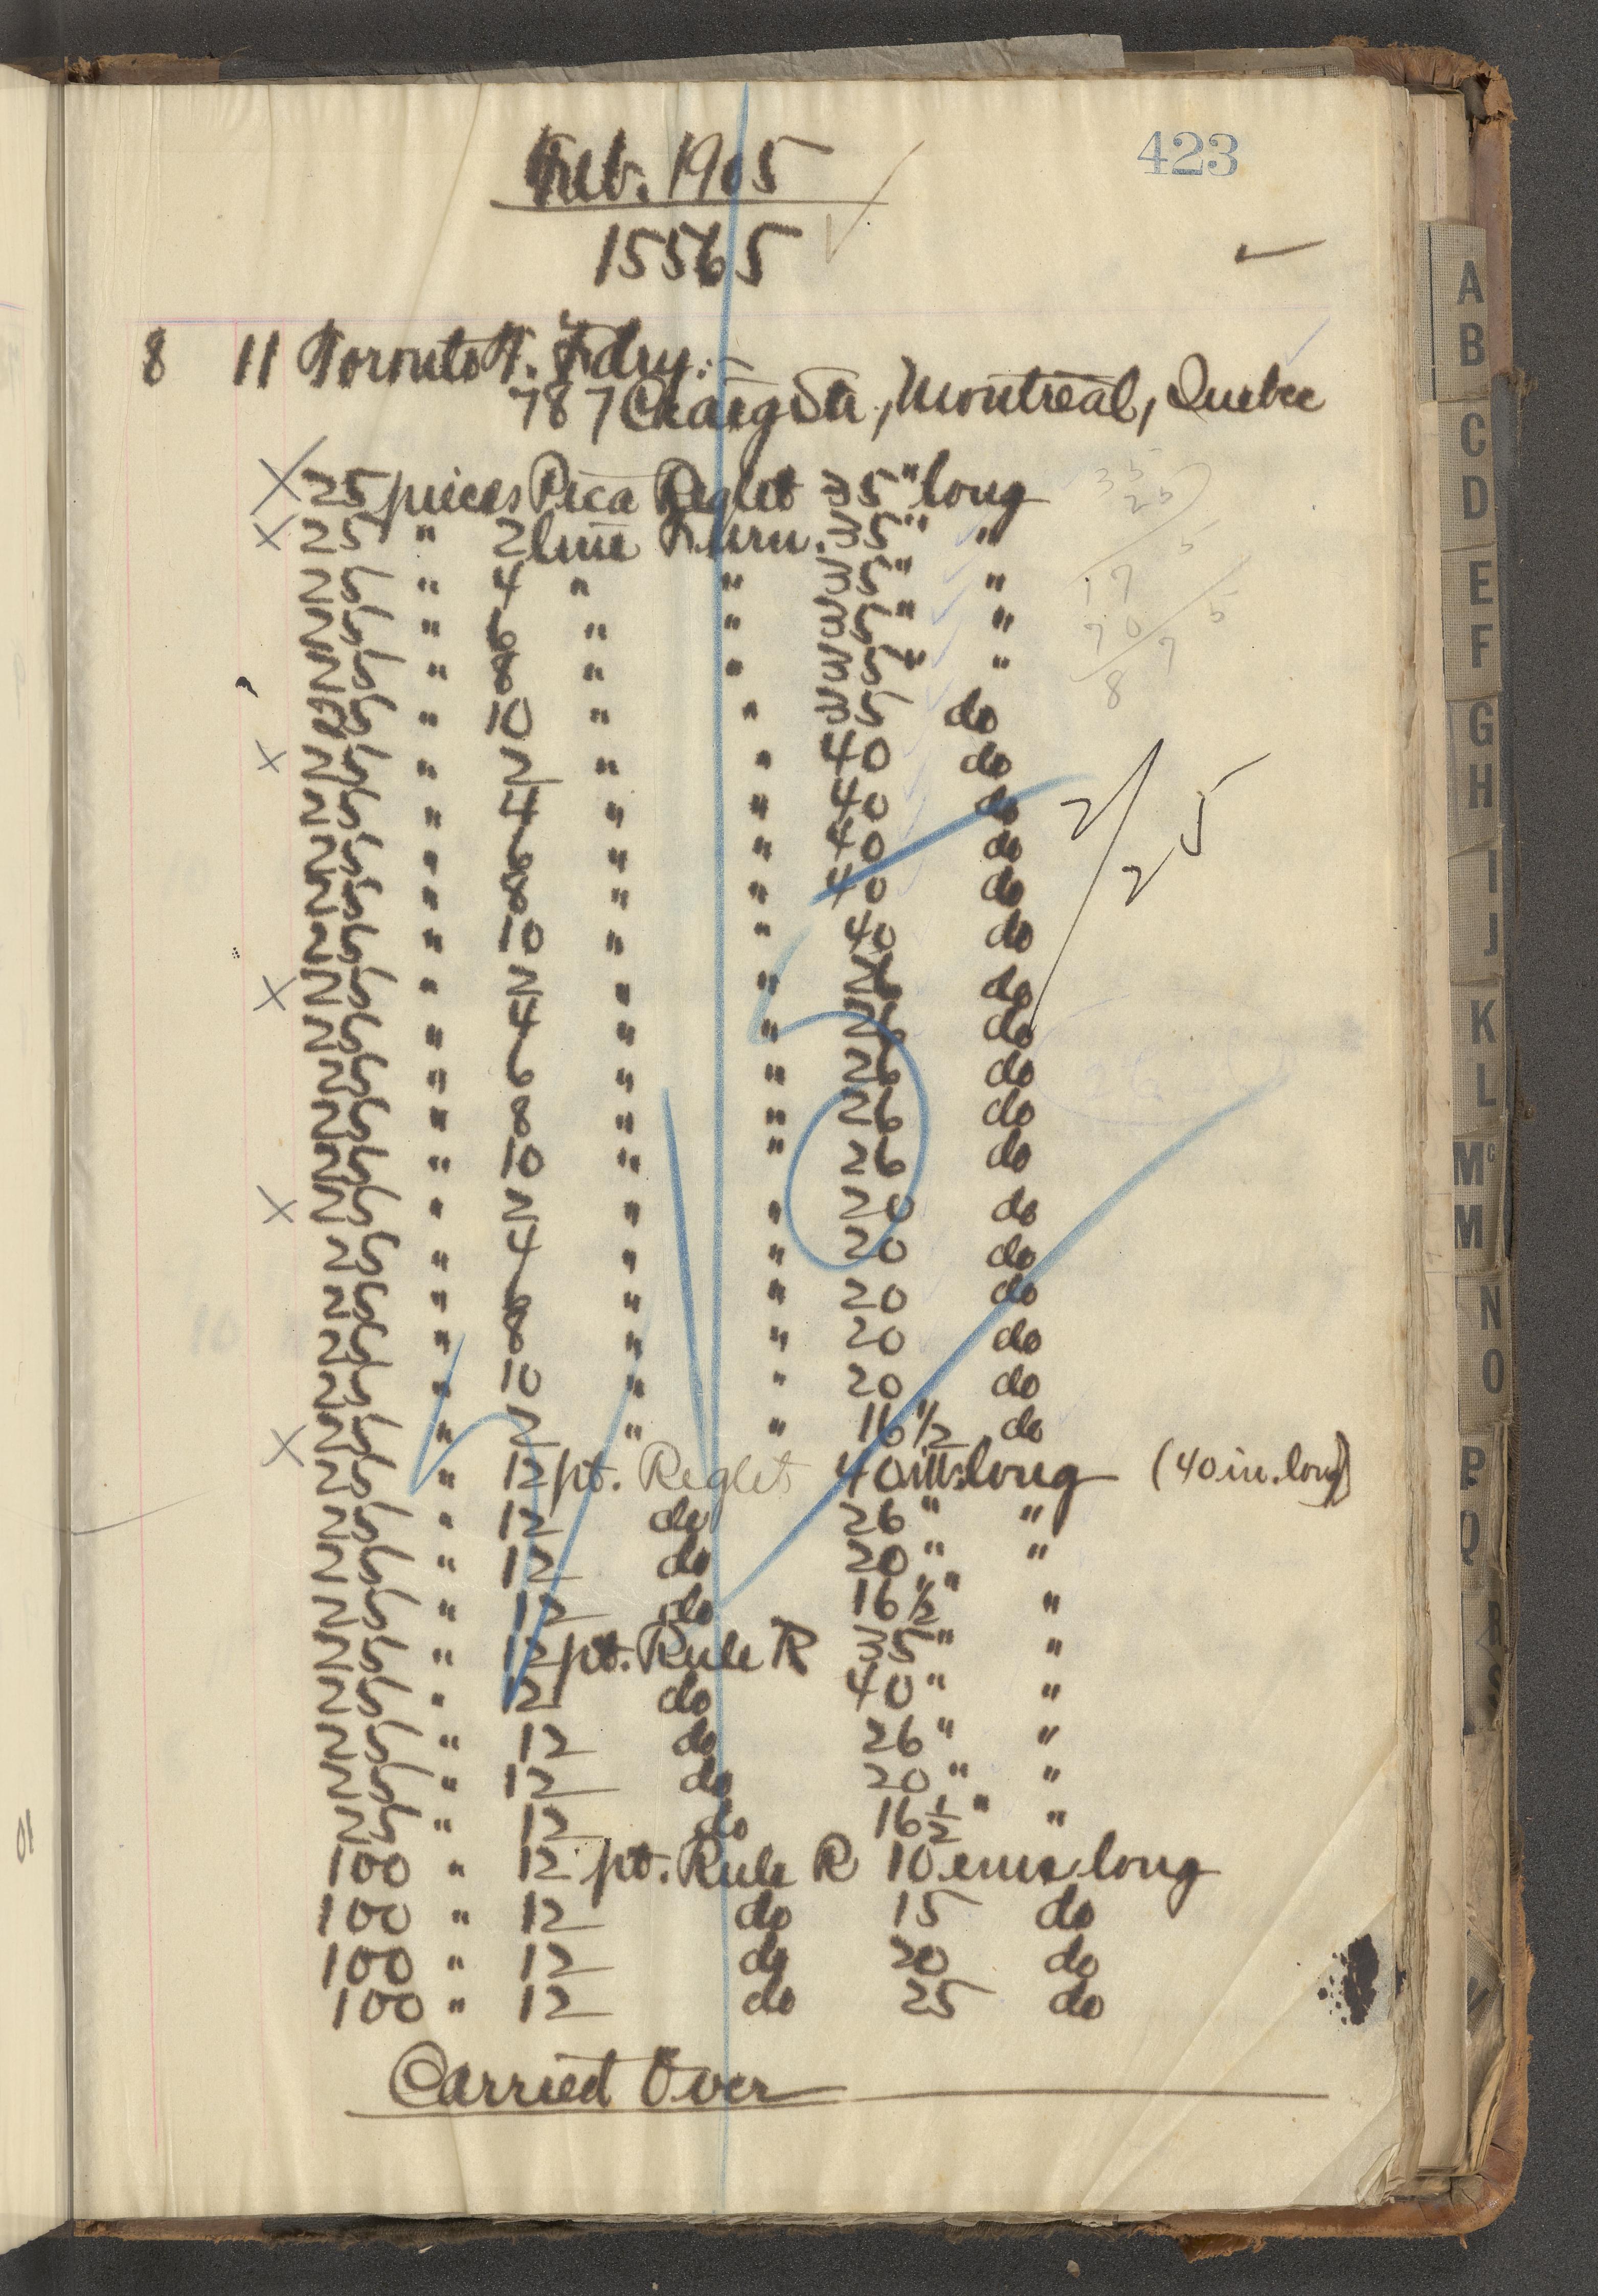 423
Feb. 1905
15565
8 11 Toronto T. Fdry:-
787 Craig St., Montreal, Quebec
25 pieces Pica Reglet 35" long
25 " 2 line Furn. 35" "
25 " 4 " " 35" "
25 " 6 " " 35" "
25 " 8 " " 35" "
25 " 10 " " 35 do
25 " 2 " " 40 do
25 " 4 " " 40 do
25 " 6 " " 40 do
25 " 8 " " 40 do
25 " 10 " " 40 do
25 " 2 " " 26 do
25 " 4 " " 26 do
25 " 6 " " 26 do
25 " 8 " " 26 do
25 " 10 " " 26 do
25 " 2 " " 20 do
25 " 4 " " 20 do
25 " 6 " " 20 do
25 " 8 " " 20 do
25 " 10 " " 20 do
25 " 2 " " 16 1/2 do
25 " 12 pt. Reglet 40 in. long (40 in. long)
25 " 12 do 26 " "
25 " 12 do 20 " "
25 " 12 do 16 1/2 " "
25 " 12 pt. Rule R 35 " "
25 " 12 do 40 " "
25 " 12 do 26 " "
25 " 12 do 20 " "
25 " 12 do 16 1/2 " "
100 " 12 pt. Rule R 10 ems long
100 " 12 do 15 do
100 " 12 do 20 do
100 " 12 do 25 do
Carried Over
35
25
175
70
875
2/25
A
B
C
D
E
F
G
H
I
J
K
L
Mc
M
N
O
P
Q
R
S